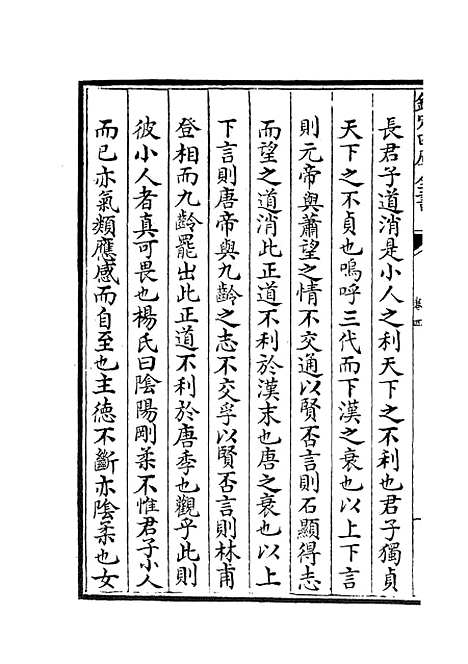 長君子道消是小人之利天下之不利也君子獨貞
天下之不貞也嗚呼三代而下漢之衰也以上下言
則元帝與蕭望之情不交通以賢否言則石顯得志
而望之道消此正道不利於漢末也唐之衰也以上
下言則唐帝與九齡之志不交孚以賢否言則林甫
登相而九齡罷出此正道不利於唐季也觀乎此則
彼小人者真可畏也楊氏曰陰陽剛柔不惟君子小人
而已亦氣類應感而自至也主德不斷亦陰柔也女